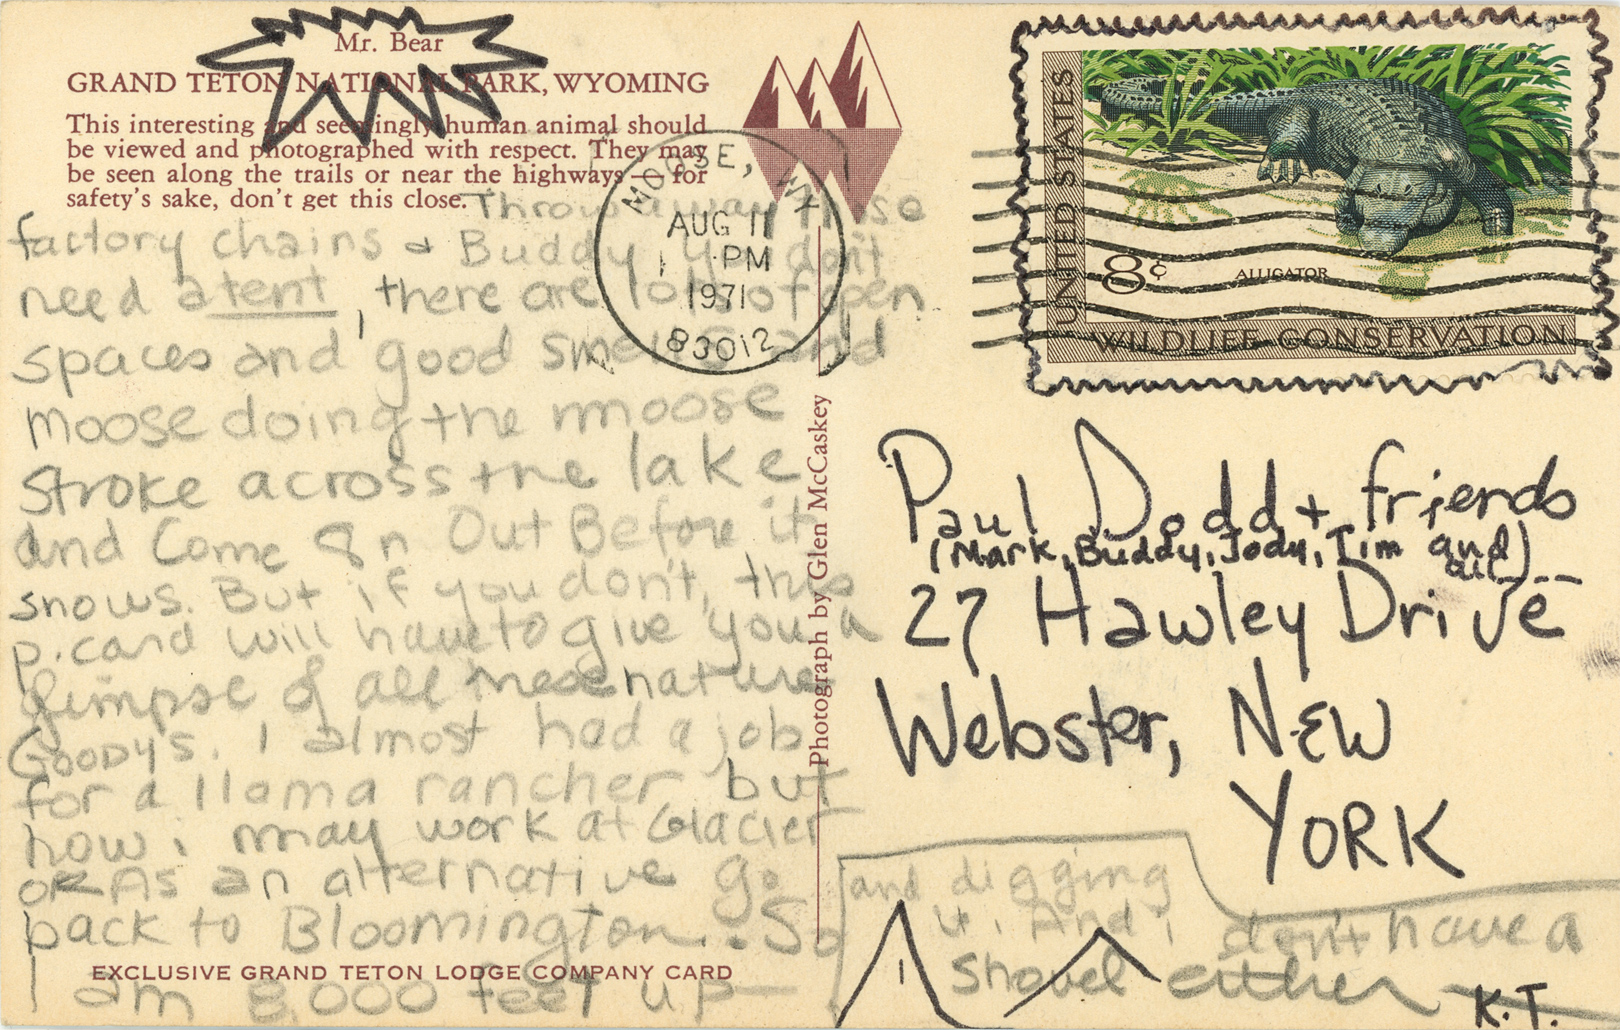 Mr. Bear
GRAND TETON NATIONAL PARK, WYOMING
This interesting and seemingly human animal should
be viewed and photographed with respect. They may
be seen along the trails or near the highways — for
safety's sake, don't get this close.
Throw away those
factory chains + Buddy you don't
need a tent, there are lots of open
spaces and good smells and
moose doing the moose
stroke across the lake
and Come On Out Before it
snows. But if you don't, this
p.card will have to give you a
glimpse of all these nature
Goodys. I almost had a job
for a llama rancher but
now i may work at Glacier
OR As an alternative go
back to Bloomington. So
I am 8,000 feet up —
and digging
it. And i don't have a
shovel either
K.T.
EXCLUSIVE GRAND TETON LODGE COMPANY CARD
Photograph by Glen McCaskey
MOOSE, WY
AUG 11
PM
1971
83012
UNITED STATES
8¢
ALLIGATOR
WILDLIFE CONSERVATION
Paul Dodd + friends
(Mark, Buddy, Jody, Jim and
all)
27 Hawley Drive
Webster, NEW
YORK